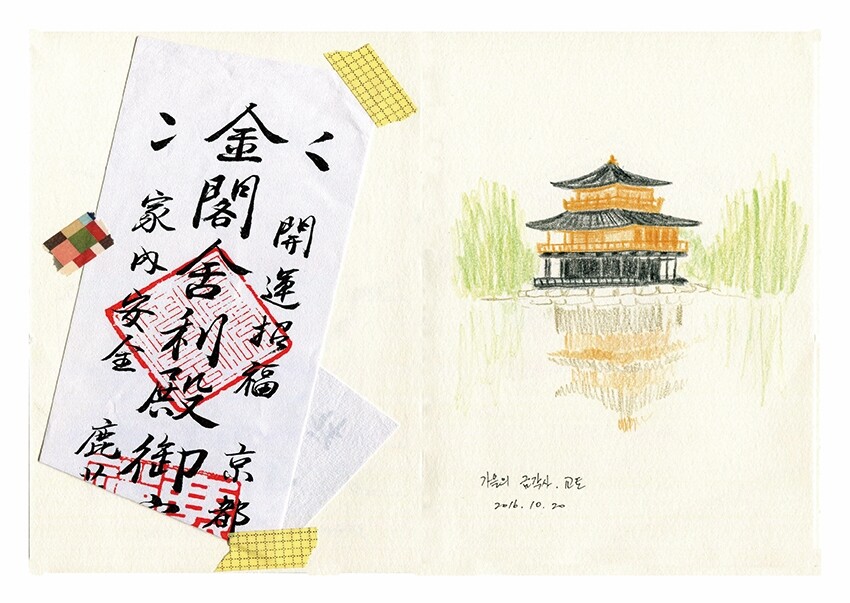 開運招福
京都
金閣舎利殿御
家内安全
鹿
가을의 금각사. 교토
2016. 10. 20